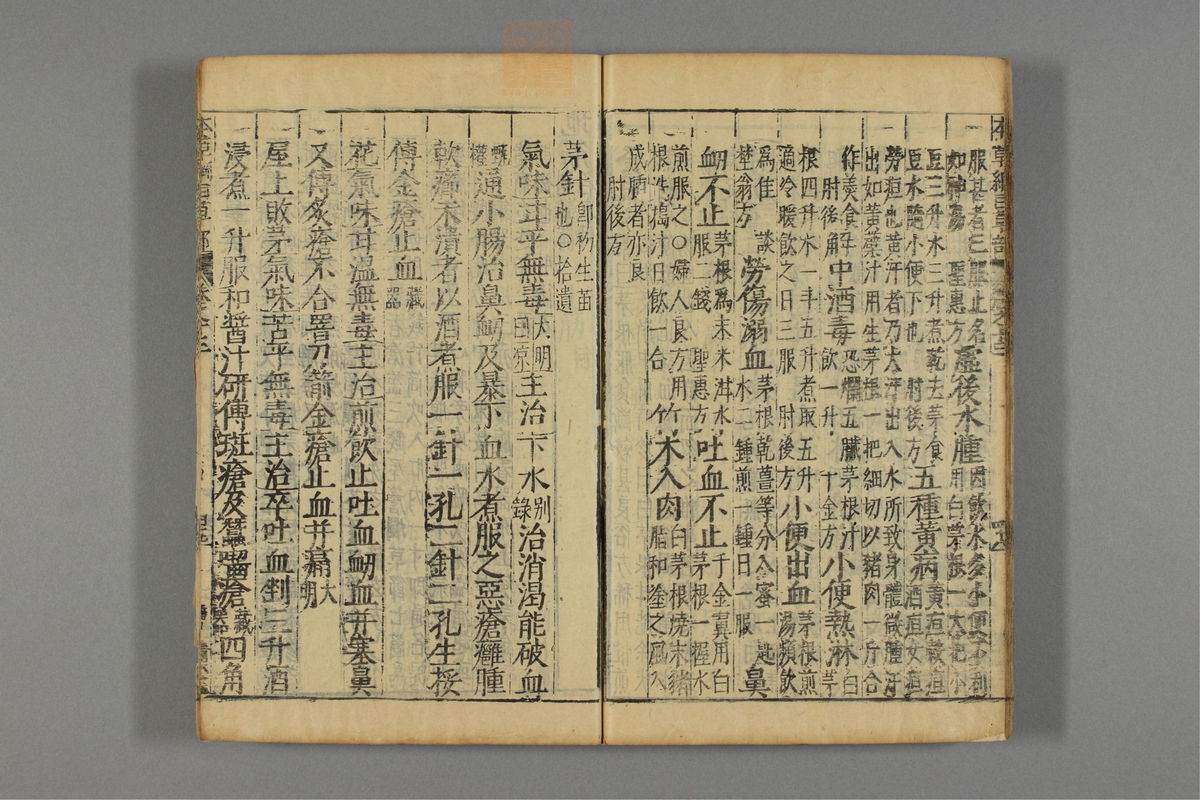 服甚者三服止名
如神湯 聖惠方
虛後水腫
因飲水多小便不利
用白茅根一大把小
豆三升水三升煮乾去茅食
豆水隨小便下也 肘後方
五種黃病
黃疸穀疸
酒疸女疸
勞疸也黃汗者乃大汗出入水所致身體微腫汗
出如黃蘗汁用生茅根一把細切以豬肉一斤合
作羹食
肘後
解中酒毒
恐爛五臟茅根汁
飲一升 千金方
小便熱淋
白茅
根四升水一斗五升煮取五升
適冷暖飲之日三服 肘後方
小便出血
茅根煎
湯頻飲
為佳 談
埜翁方
勞傷溺血
茅根乾薑等分入蜜一匙
水二鍾煎一鍾日一服
鼻
衂不止
茅根為末米泔水
服二錢 聖惠方
吐血不止
千金翼用白
茅根一握水
煎服之○婦人良方用
根洗搗汁日飲一合
竹木入肉
白茅根燒末豬
脂和塗之風入
成腫者亦良
肘後方
茅針
即初生苗
也○拾遺
氣味甘平無毒
大明
曰凉
主治下水
别
錄
治消渴能破血
甄
權
通小腸治鼻衂及暴下血水煮服之惡瘡癰腫
軟癤未潰者以酒煮服一針一孔二針二孔生挼
傅金瘡止血
藏
器
花氣味甘溫無毒主治煎飲止吐血衂血并塞鼻
又傅灸瘡不合署刀箭金瘡止血并痛
大
明
屋上敗茅氣味苦平無毒主治卒吐血剉三升酒
浸煮一升服和醬汁研傅斑瘡及蠶齧瘡
藏
器
四角